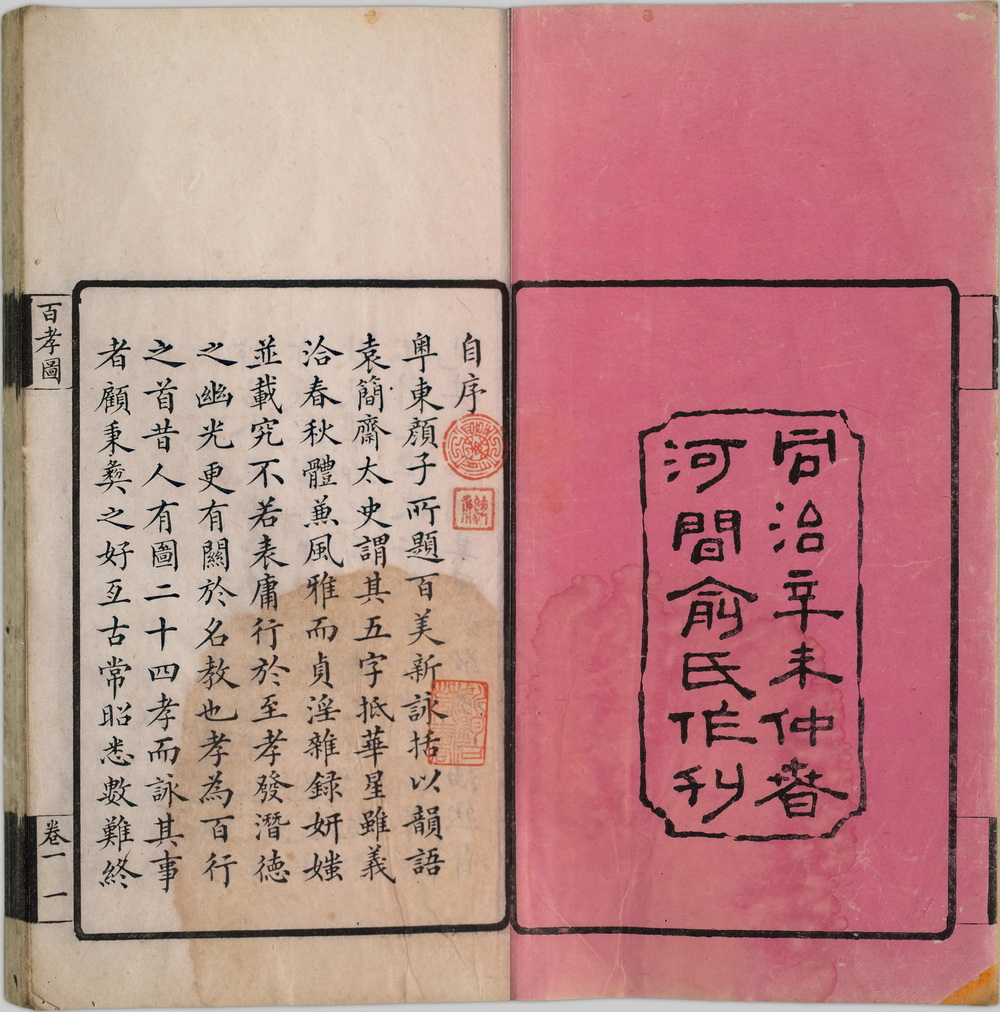 同治辛未仲春
河間俞氏作刊
自序
粤東顏子所題百美新詠括以韻語
袁簡齋太史謂其五字抵華星雖義
洽春秋體兼風雅而貞淫雜録妍媸
並載究不若表庸行於至孝發潛德
之幽光更有關於名教也孝為百行
之首昔人有圖二十四孝而詠其事
者顧秉彝之好亙古常昭悉數難終
百孝圖
卷一 一